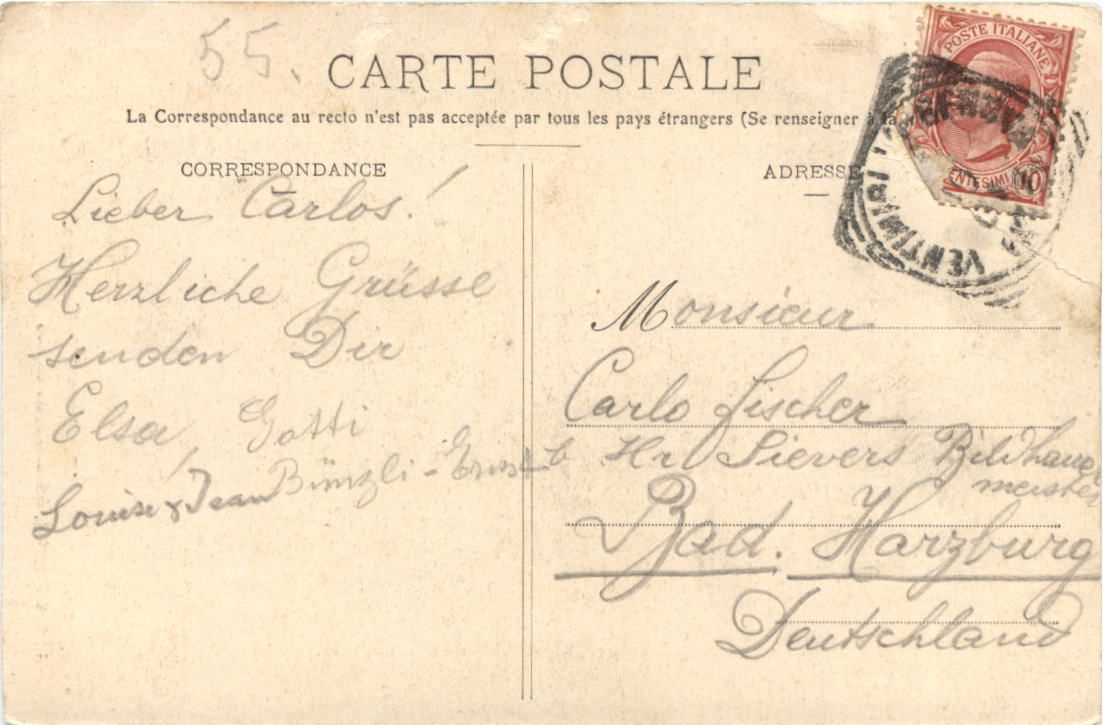 55.
CARTE POSTALE
La Correspondance au recto n'est pas acceptée par tous les pays étrangers (Se renseigner à la
CORRESPONDANCE
Lieber Carlos!
Herzliche Grüsse
senden Dir
Elsa, Gotti
Louise & Jean Bünzli-Ernst
ADRESSE
Monsieur
Carlo Fischer
b Hr Sievers Bildhauer
meister
Bad. Harzburg
Deutschland
POSTE ITALIANE
CENTESIMI 10
VENTIMI